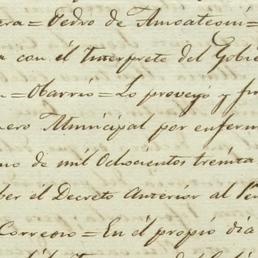 era = Pedro de Amoategui =
a con él Interprete del Gobie
n = Obarrio = Lo proveyo y fir
nero Municipal por enferm
no de mil Ochocientos treinta
ber el Decreto Anterior al Ve
Correoso = En el propio dia